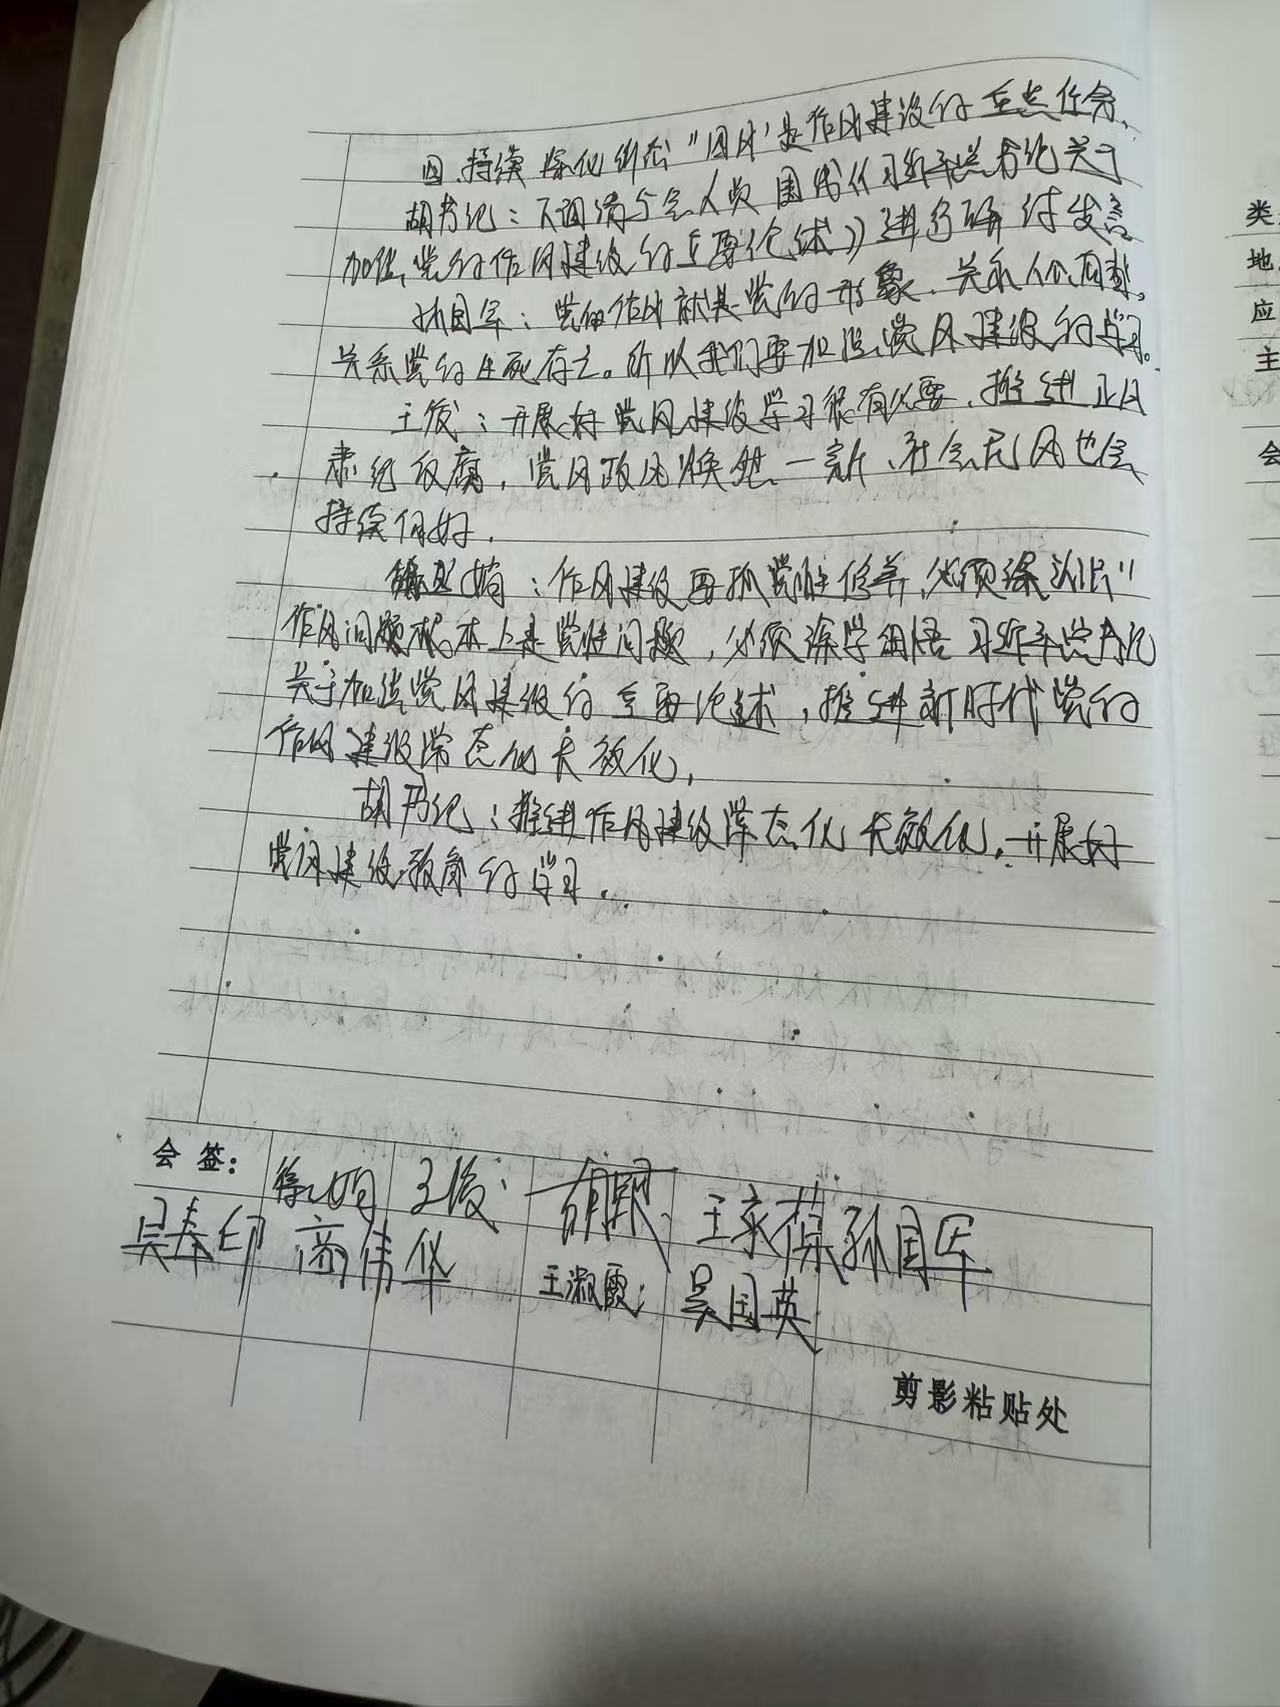 四、持续深化纠治"四风"是作风建设的重点任务、
胡书记：下面请与会人员围绕《习近平总书记关于
加强党的作风建设的重要论述》进行研讨发言
孙国军：党的作风就是党的形象、关系人心向背。
关系党的生死存亡。所以我们要加强党风建设的学习。
王俊：开展好党风建设学习很有必要、推进正风
肃纪反腐，党风政风焕然一新、社会民风也会
持续向好.
作风建设要抓党性修养、必须深刻
作风问题根本上是党性问题，必须深学细悟习近平总书记
关于加强党风建设的重要论述，推进新时代党的
作风建设常态化长效化，
胡书记：推进作风建设常态化长效化、开展好
党风建设教育的学习.
会签：
王俊
胡颖
孙国军
吴奉印
高伟华
王淑霞
吴国英
剪影粘贴处
类
地
应
主
会